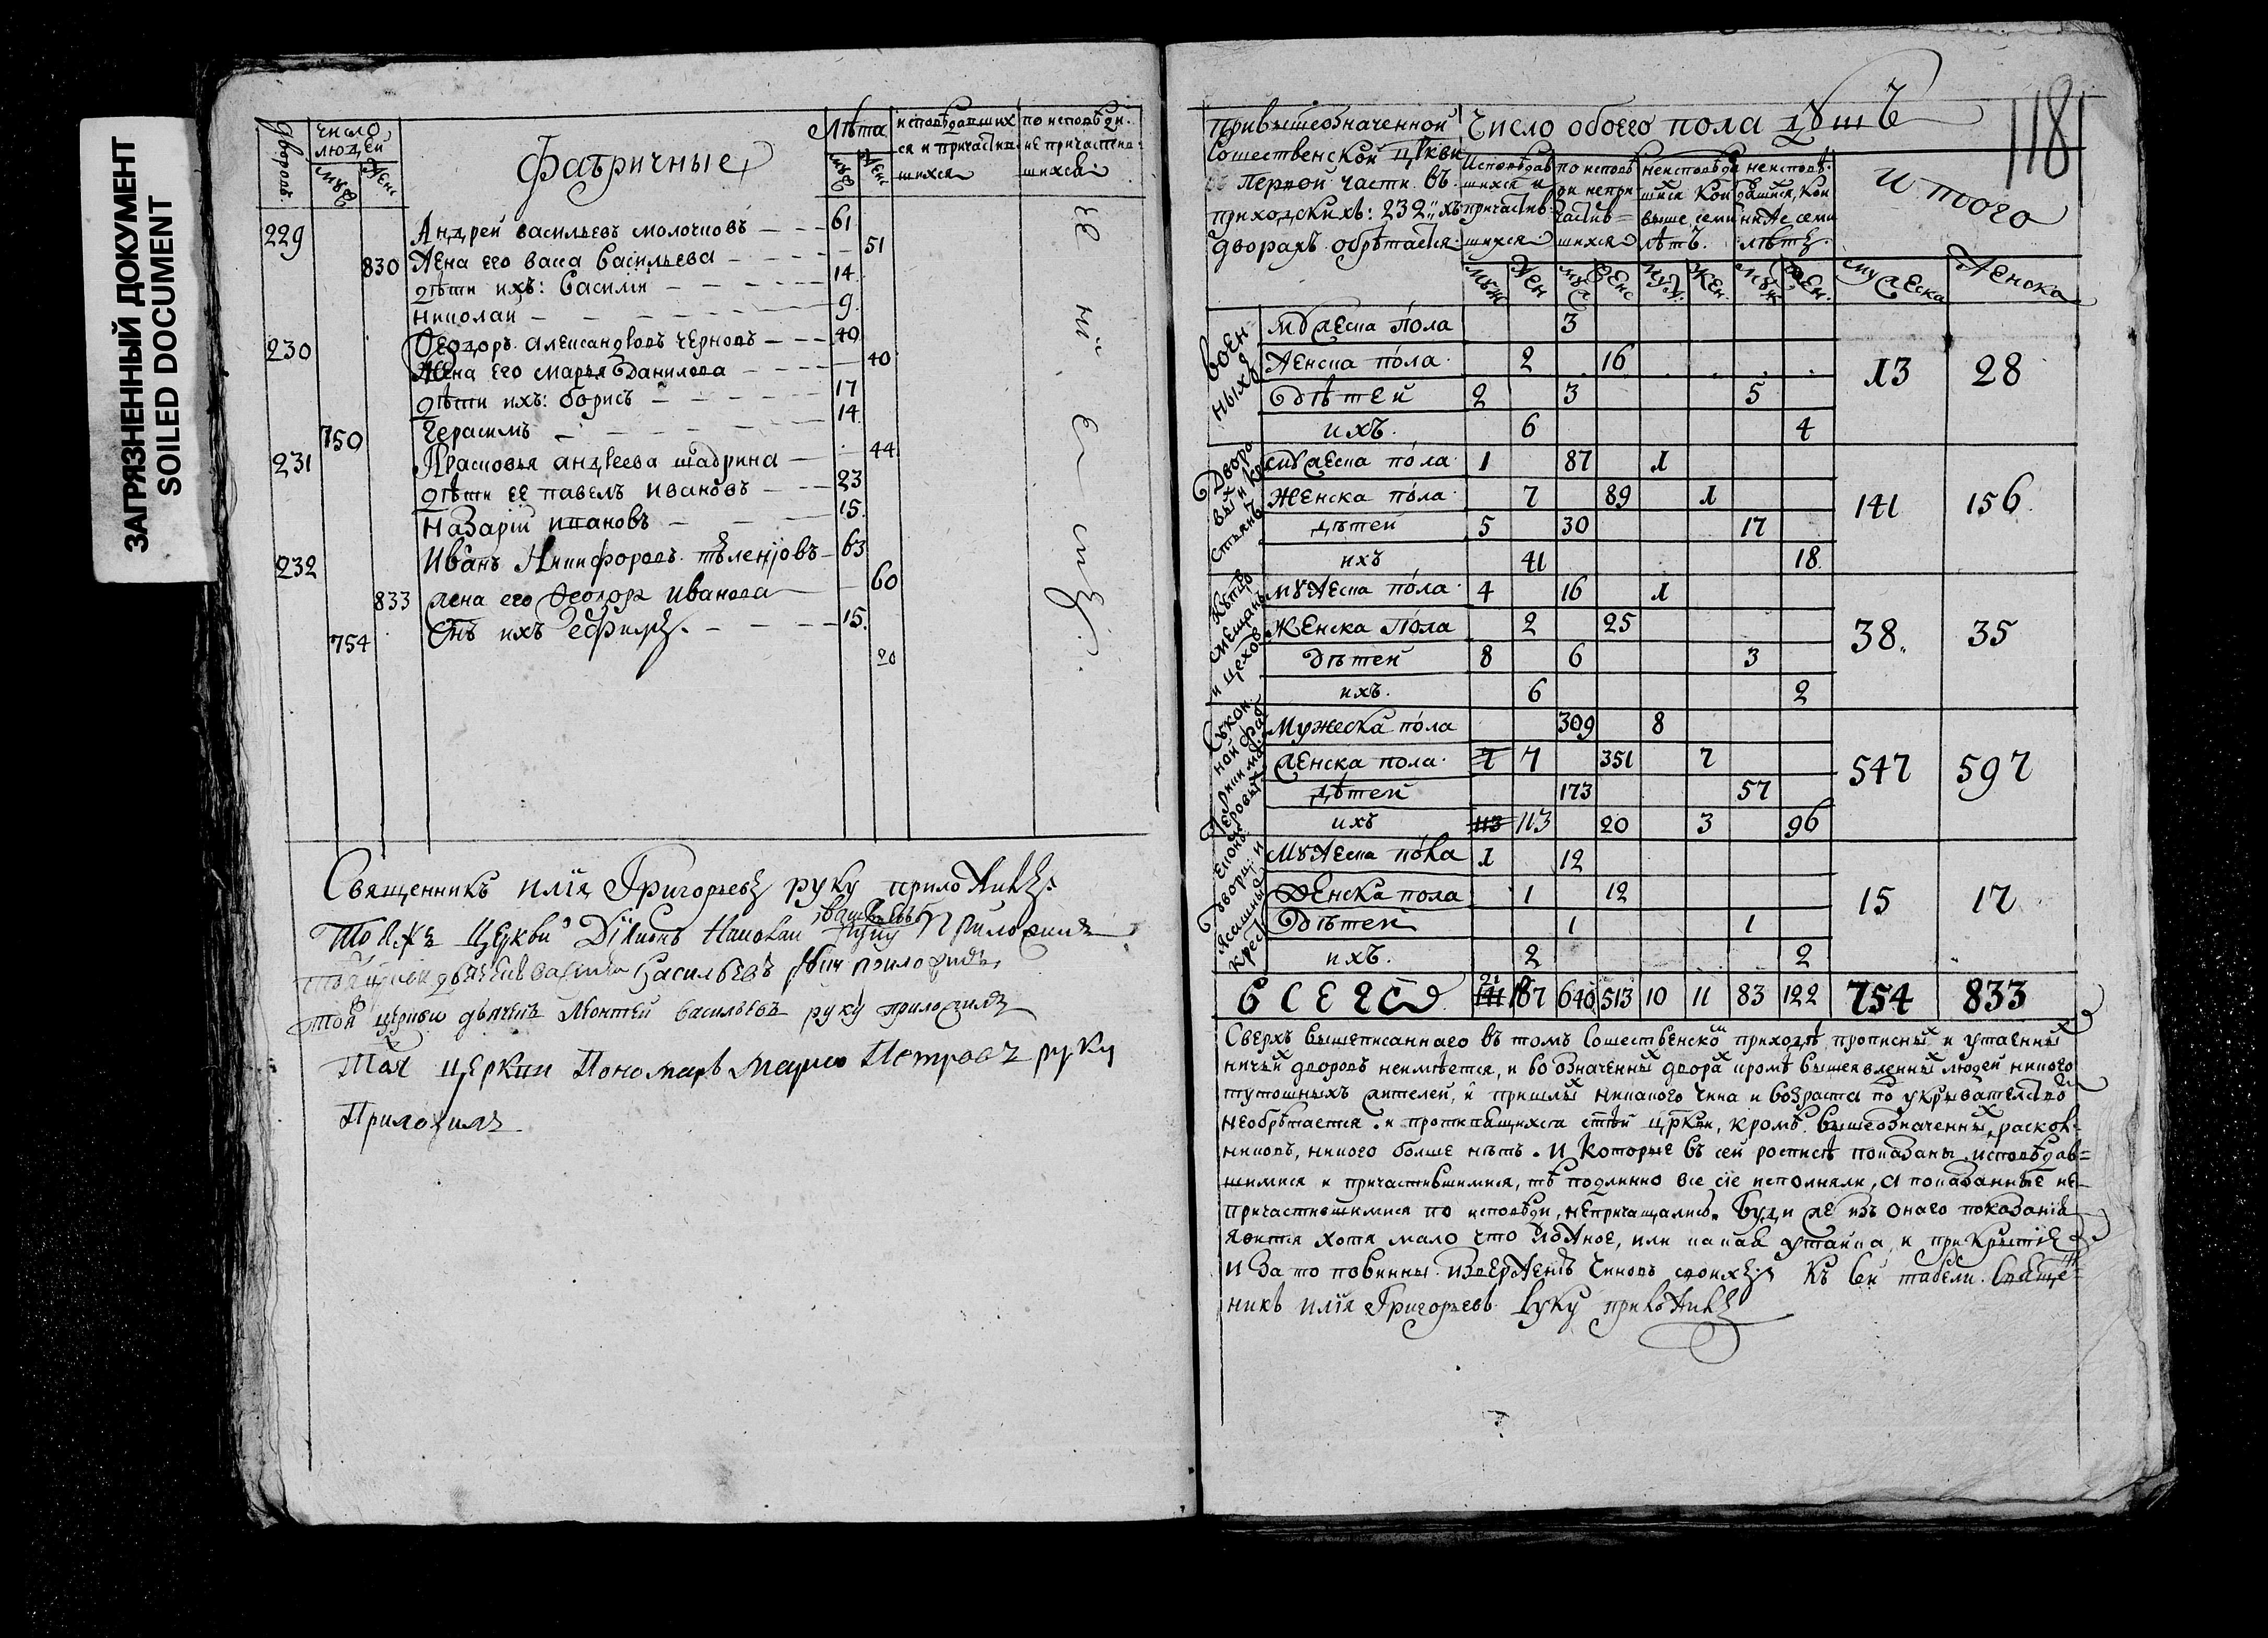 ЗАГРЯЗНЕННЫЙ ДОКУМЕНТ
SOILED DOCUMENT
дворовъ
число людей
муж
женс
Фабричные
Лѣта
муж
женс
исповѣдавших
ся и причастив
шихся
по исповѣди
не причастив
шихся
229 Андрей васильевъ молочновъ 61
830 Жена его васса васильева 51
дѣти ихъ: василій 14
николай 9
230 Ѳеодоръ александровъ черновъ 40
Жена его марья данилова 40
дѣти ихъ: борисъ 17
750 герасимъ 14
231 Прасковья андреева шадрина 44
дѣти ее павелъ ивановъ 23
назарій ивановъ 15
232 Иванъ Никифоровъ 63
833 жена его Ѳеодора иванова 60
754 снъ ихъ ефимъ 15
20
Священникъ илія Григорьевъ руку приложилъ
тоя же церкви Діаконъ Николай васильевъ руку приложилъ
васильевъ руку приложилъ
тоя церкви дьячекъ Леонтей васильевъ руку приложилъ
тоя церкви Пономарь марко Петровъ руку
Приложилъ
118
при вышеозначенной
Сошественской цркви
въ первой части въ
приходскихъ: 232-хъ
дворахъ обрѣтается
Число обоего пола душъ
исповѣдав
шихся и
причастив
шихся
по исповѣ
ди непри
частив
шихся
неисповѣда
шихся кои
выше семи
лѣтъ
неисповѣ
давшихся, кои
ниже семи
лѣтъ
Итого
муж жен муж женс муж жен муж жен мужеска женска
военных
мужеска пола 3
женска пола 2 16
дѣтей 2 3 5
ихъ 6 4
13 28
Дворовых и крестьянъ
мужеска пола 1 87 1
женска пола 7 89 1
дѣтей 5 30 17
ихъ 41 18
141 156
Купцовъ мещанъ и цеховъ
мужеска пола 4 16 1
женска пола 2 25
дѣтей 8 6 3
ихъ 6 2
38 35
Сукон ной фаб рики
мужеска пола 309 8
женска пола 7 7 351 7
дѣтей 173 57
ихъ 113 113 20 3 96
547 597
мужеска пола 1 12
женска пола 1 12
дѣтей 1 1
ихъ 2 2
15 17
всего 21 141 187 640 513 10 11 83 122 754 833
Сверхъ вышеписаннаго въ томъ сошественско приходѣ прописны и утаенны
ничьи дворовъ неимѣется, и во означенны двора кромѣ вышеявленны людей никого
тутошныхъ жителей, и пришлы никакого чина и возраста по укрывателство
необрѣтается. и противящихся стой цркви, кромѣ вышеозначенны раскол
никовъ, никого болше нѣтъ. И которые въ сей росписѣ показаны исповѣдав
шимися и причастившимися, тѣ подлинно все сіе исполняли, а показанные не
причастившимися по исповѣди, непричащались. буди же изъ онаго показанія
явится хотя мало что ложное, или какая утайка, и прикрытіе
и за то повинны изверженъ чиновъ своихъ. Къ сей табели Свяще
никъ илія Григорьевъ руку приложилъ